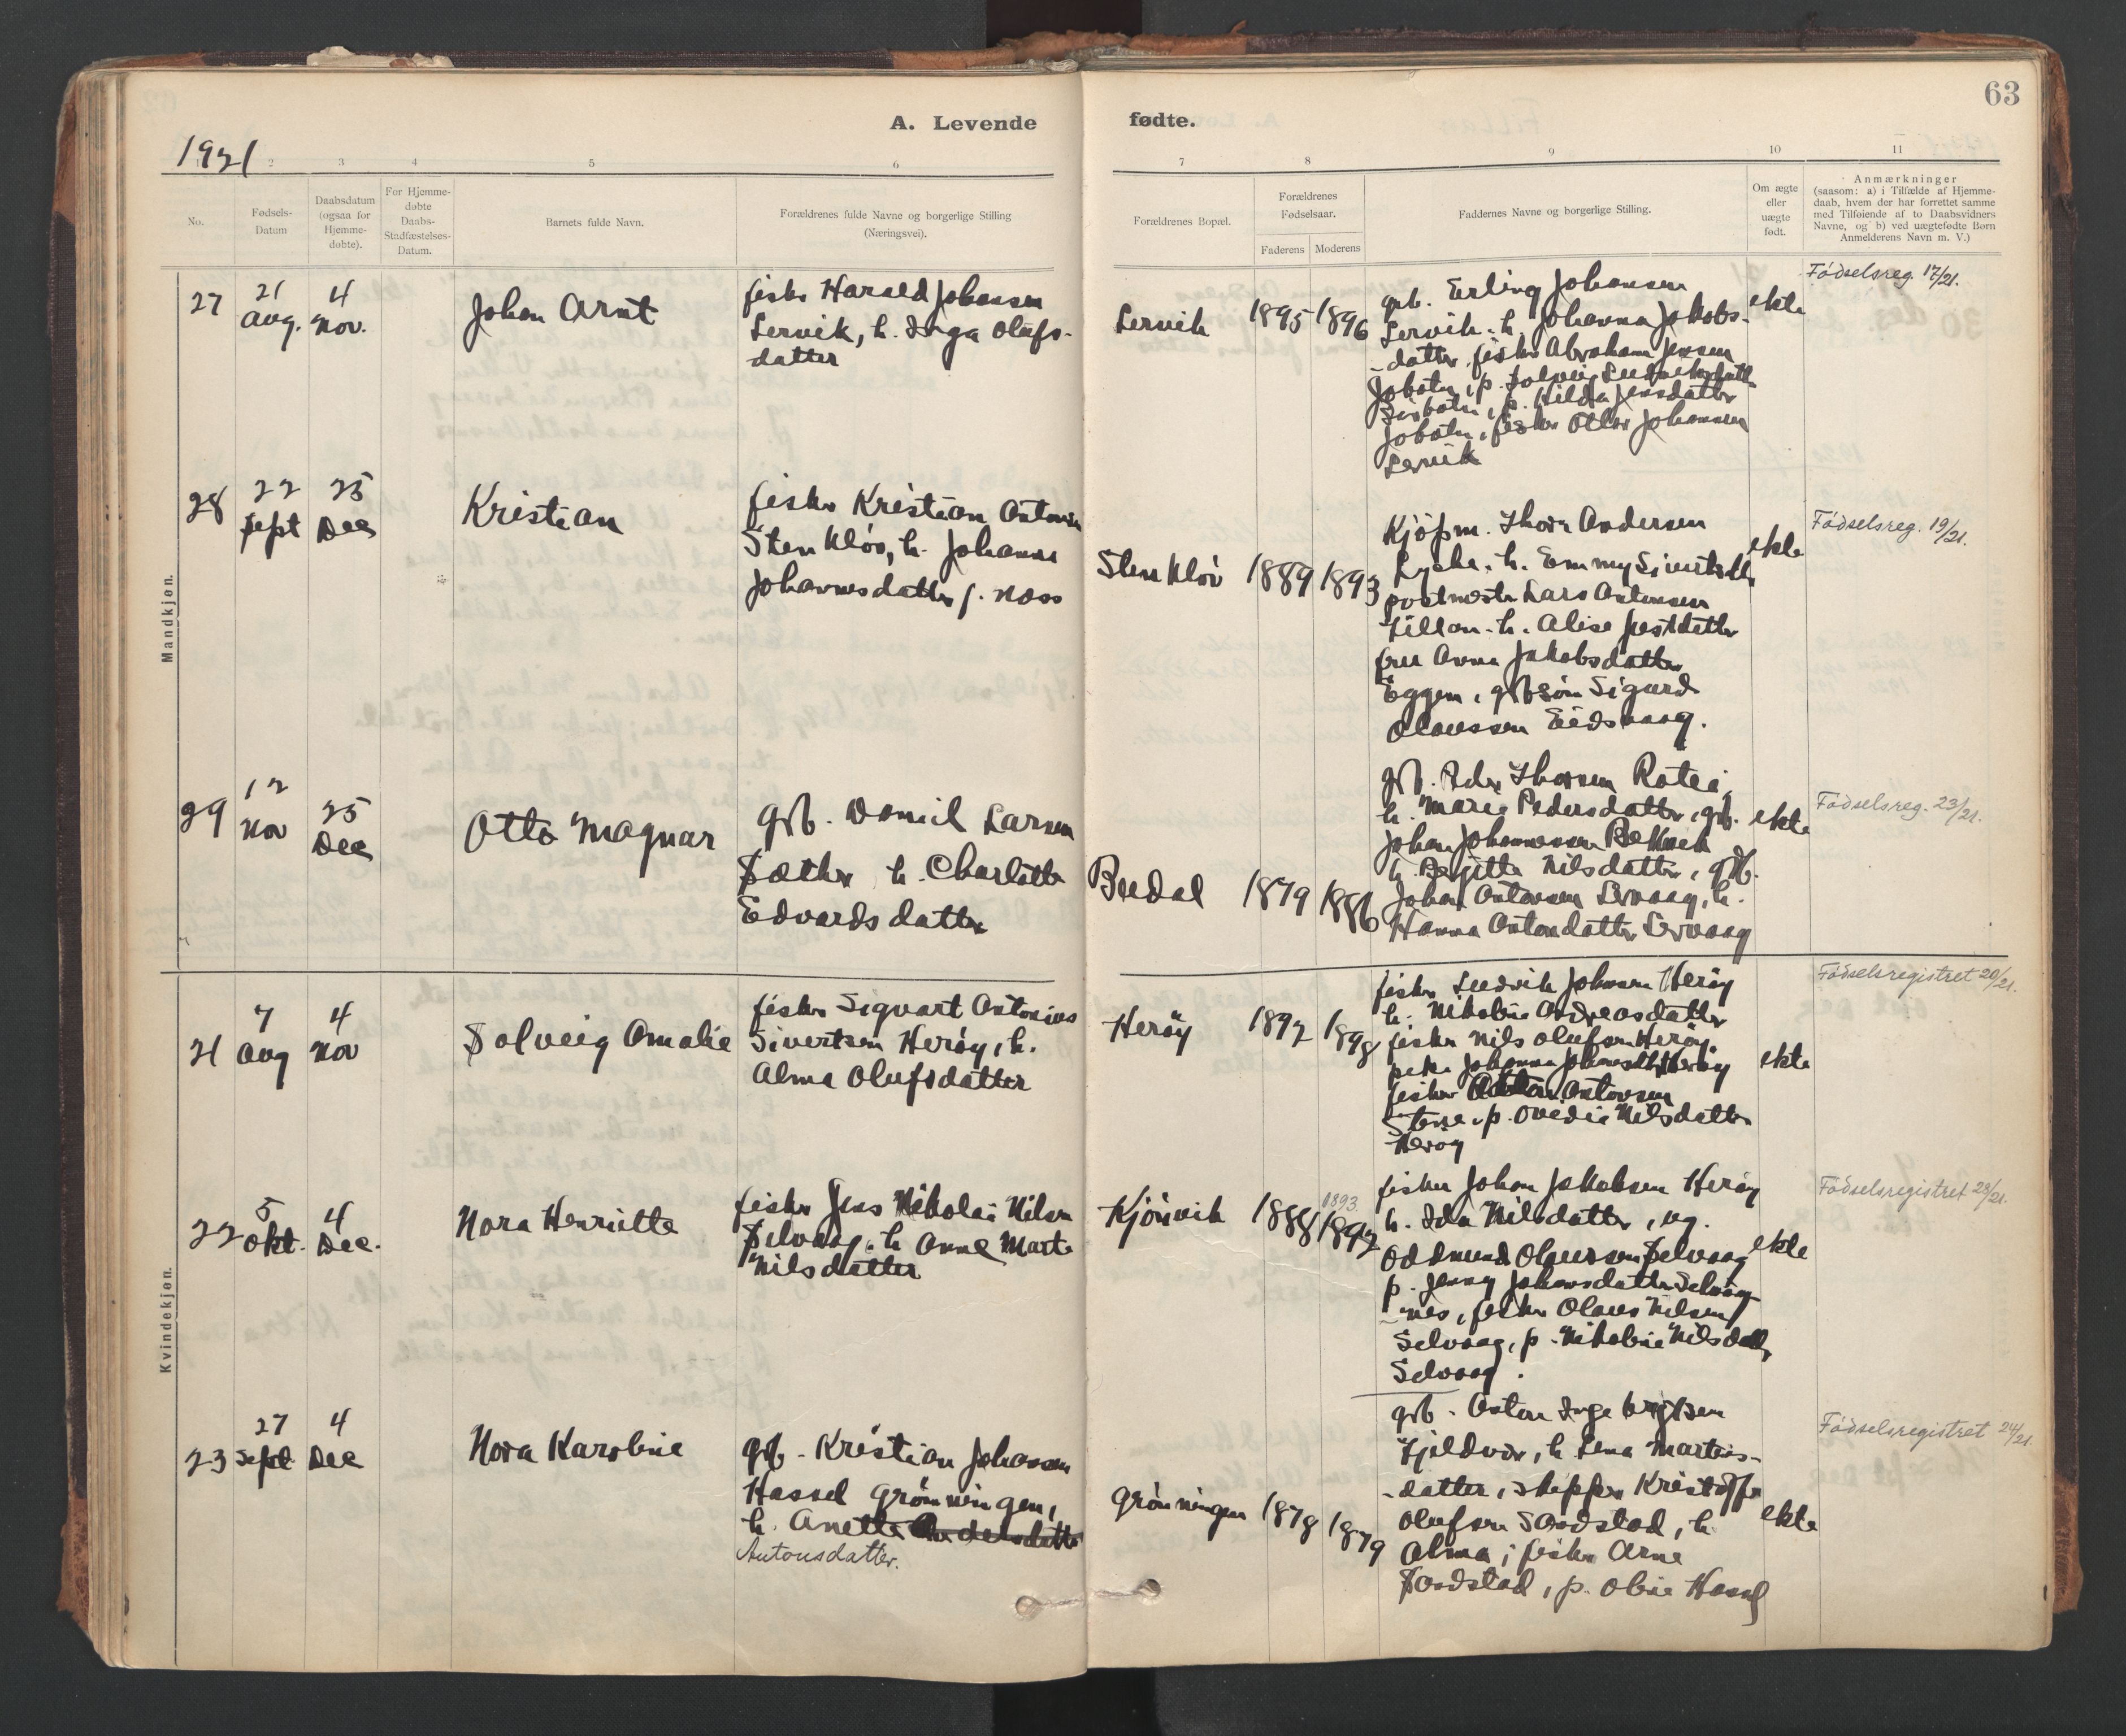 63
A. Levende
fødte.
1921
2 3 4 5 6
7 8 9 10 11
No.
Fødsels-
Datum
Daabsdatum
(ogsaa for
Hjemme-
døbte).
For Hjemme-
døbte
Daabs-
Stadfæstelses-
Datum.
Barnets fulde Navn.
Forældrenes fulde Navne og borgerlige Stilling
(Næringsvei).
Forældrenes Bopæl.
Forældrenes
Fødselsaar.
Faderens
Moderens
Faddernes Navne og borgerlige Stilling.
Om ægte
eller
uægte
født.
Anmærkninger
(saasom: a) i Tilfælde af Hjemme-
daab, hvem der har forrettet samme
med Tilføiende af to Daabsvidners
Navne, og b) ved uægtefødte Børn
Anmelderens Navn m. V.)
Mandkjøn.
27
21
aug.
4
nov.
Johan Arnt
fisker Harald Johansen
Lervik, h. Inga Olufs-
datter
Lervik
1895
1896
grb. Erling Johansen
Lervik. h. Johanna Jakobs-
datter, fisker Abraham Jensen
Jobotn, p. Solveig
p. Hilda Jensdatter
Jobotn, fisker Otto Johansen
Lervik
ekte
Fødselsreg. 17/21.
28
22
sept
25
Dec
Kristian
fisker Kristian Antonsen
Stenkløv, h. Johanna
Johannesdatter f. Noss
Stenkløv
1889
1893
Kjøpm. Thorn Andersen
Lycke. h. Emmy Sivertsdtr
postmester Lars Antonsen
Fillan. h. Alise
fru Anna Jakobsdatter
Eggen, grb.søn Sigurd
Olaussen Eidsvaag.
ekte
Fødselsreg. 19/21.
29
12
Nov
25
Dec
Otto Magnar
grb. Daniel Larsen
Sæther h. Charlotte
Edvardsdatter
Beedal
1879
1886
grb. Peder Thorsen
h. Marie Pedersdatter, grb.
Johan Johannessen Bekvik
h. Birgitte Nilsdatter, grb.
Johan Antonsen Servaag, h.
Hanna Antondatter Servaag
ekte
Fødselsreg. 23/21.
Kvindekjøn.
21
7
Aug
4
Nov
Solveig Amalie
fisker Sigvart Antonius
Sivertsen Herøy, h.
Alma Olufsdatter
Herøy
1892
1898
fisker Ludvik Johansen Herøy
h. Nikoline Andreasdatter
fisker Nils Olufsen Herøy,
Johanna Herøy
fisker Anton Antonsen
Stene, p. Ovedia Nilsdatter
Herøy
ekte
Fødselsregistret 20/21.
22
5
Okt.
4
Dec.
Nora Henriette
fisker Jens Nikolai Nilsen
Selvaag, h. Anne Marte
Nilsdatter
Kjönvik
1888
1893
1892
fisker Johan Jakobsen Herøy
h. Ida Nilsdatter, ug.
Oddmund Olaussen Selvaag
p. Jenny Johansdatter Selvaag-
-nes, fisker Olaus Nilsen
Selvaag, p. Nikoline Nilsdatter
Selvaag.
ekte
Fødselsregistret 28/21.
23
27
Sept
4
Dec
Nora Karoline
grb. Kristian Johansen
Hassel Grønningen,
h. Anette Andersdatter
Antonsdatter.
Grønningen
1878
1879
grb. Anton Ingebrigtsen
Fjeldvær, h. Lena Martins-
-datter, skipper Kristoffer
Olufsen Sandstad, h.
Alma; fisker Arne
Sandstad, p. Oline Hassel
ekte
Fødselsregistret 24/21.